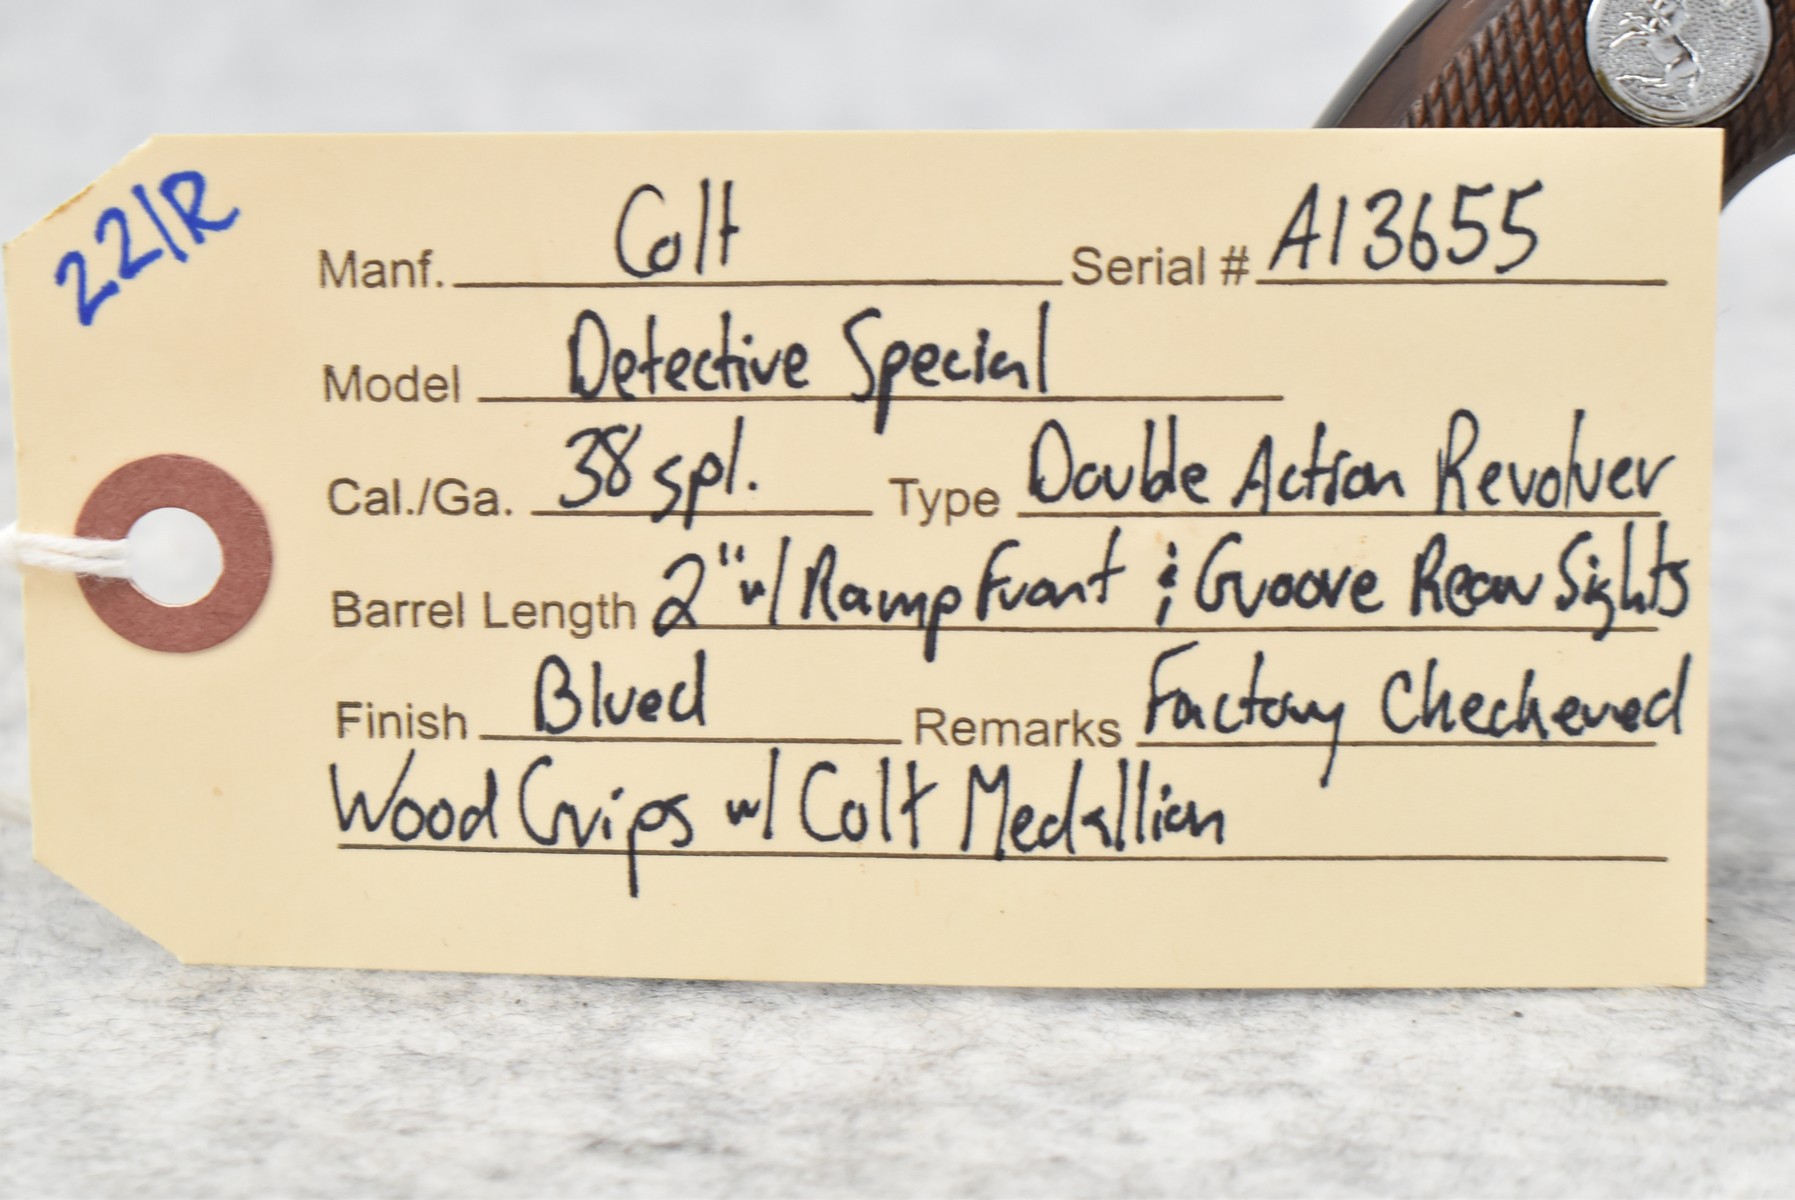 22/R
Manf. Colt Serial # A13655
Model Detective Special
Cal./Ga. 38 spl. Type Double Action Revolver
Barrel Length 2" w/ Ramp Front & Groove Rear Sights
Finish Blued Remarks Factory Checkered
Wood Grips w/ Colt Medallion